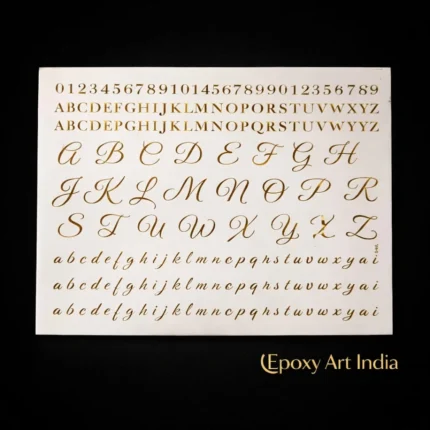 01234567891014567899012356789
ABCDEFGHIJKLMNOPORSTUVWXYZ
ABCDEPGHIJKLMNOPQRSTUVWYYZ
A B C D E F G H
J K L M N O P R
S T U W X Y X Z
abcdefghijklmncpqhstuvwxyai
abcdefghijklmncpqrstuvwxyai
abcdefghijklmncpqrstuvwxyai
Epoxy Art India